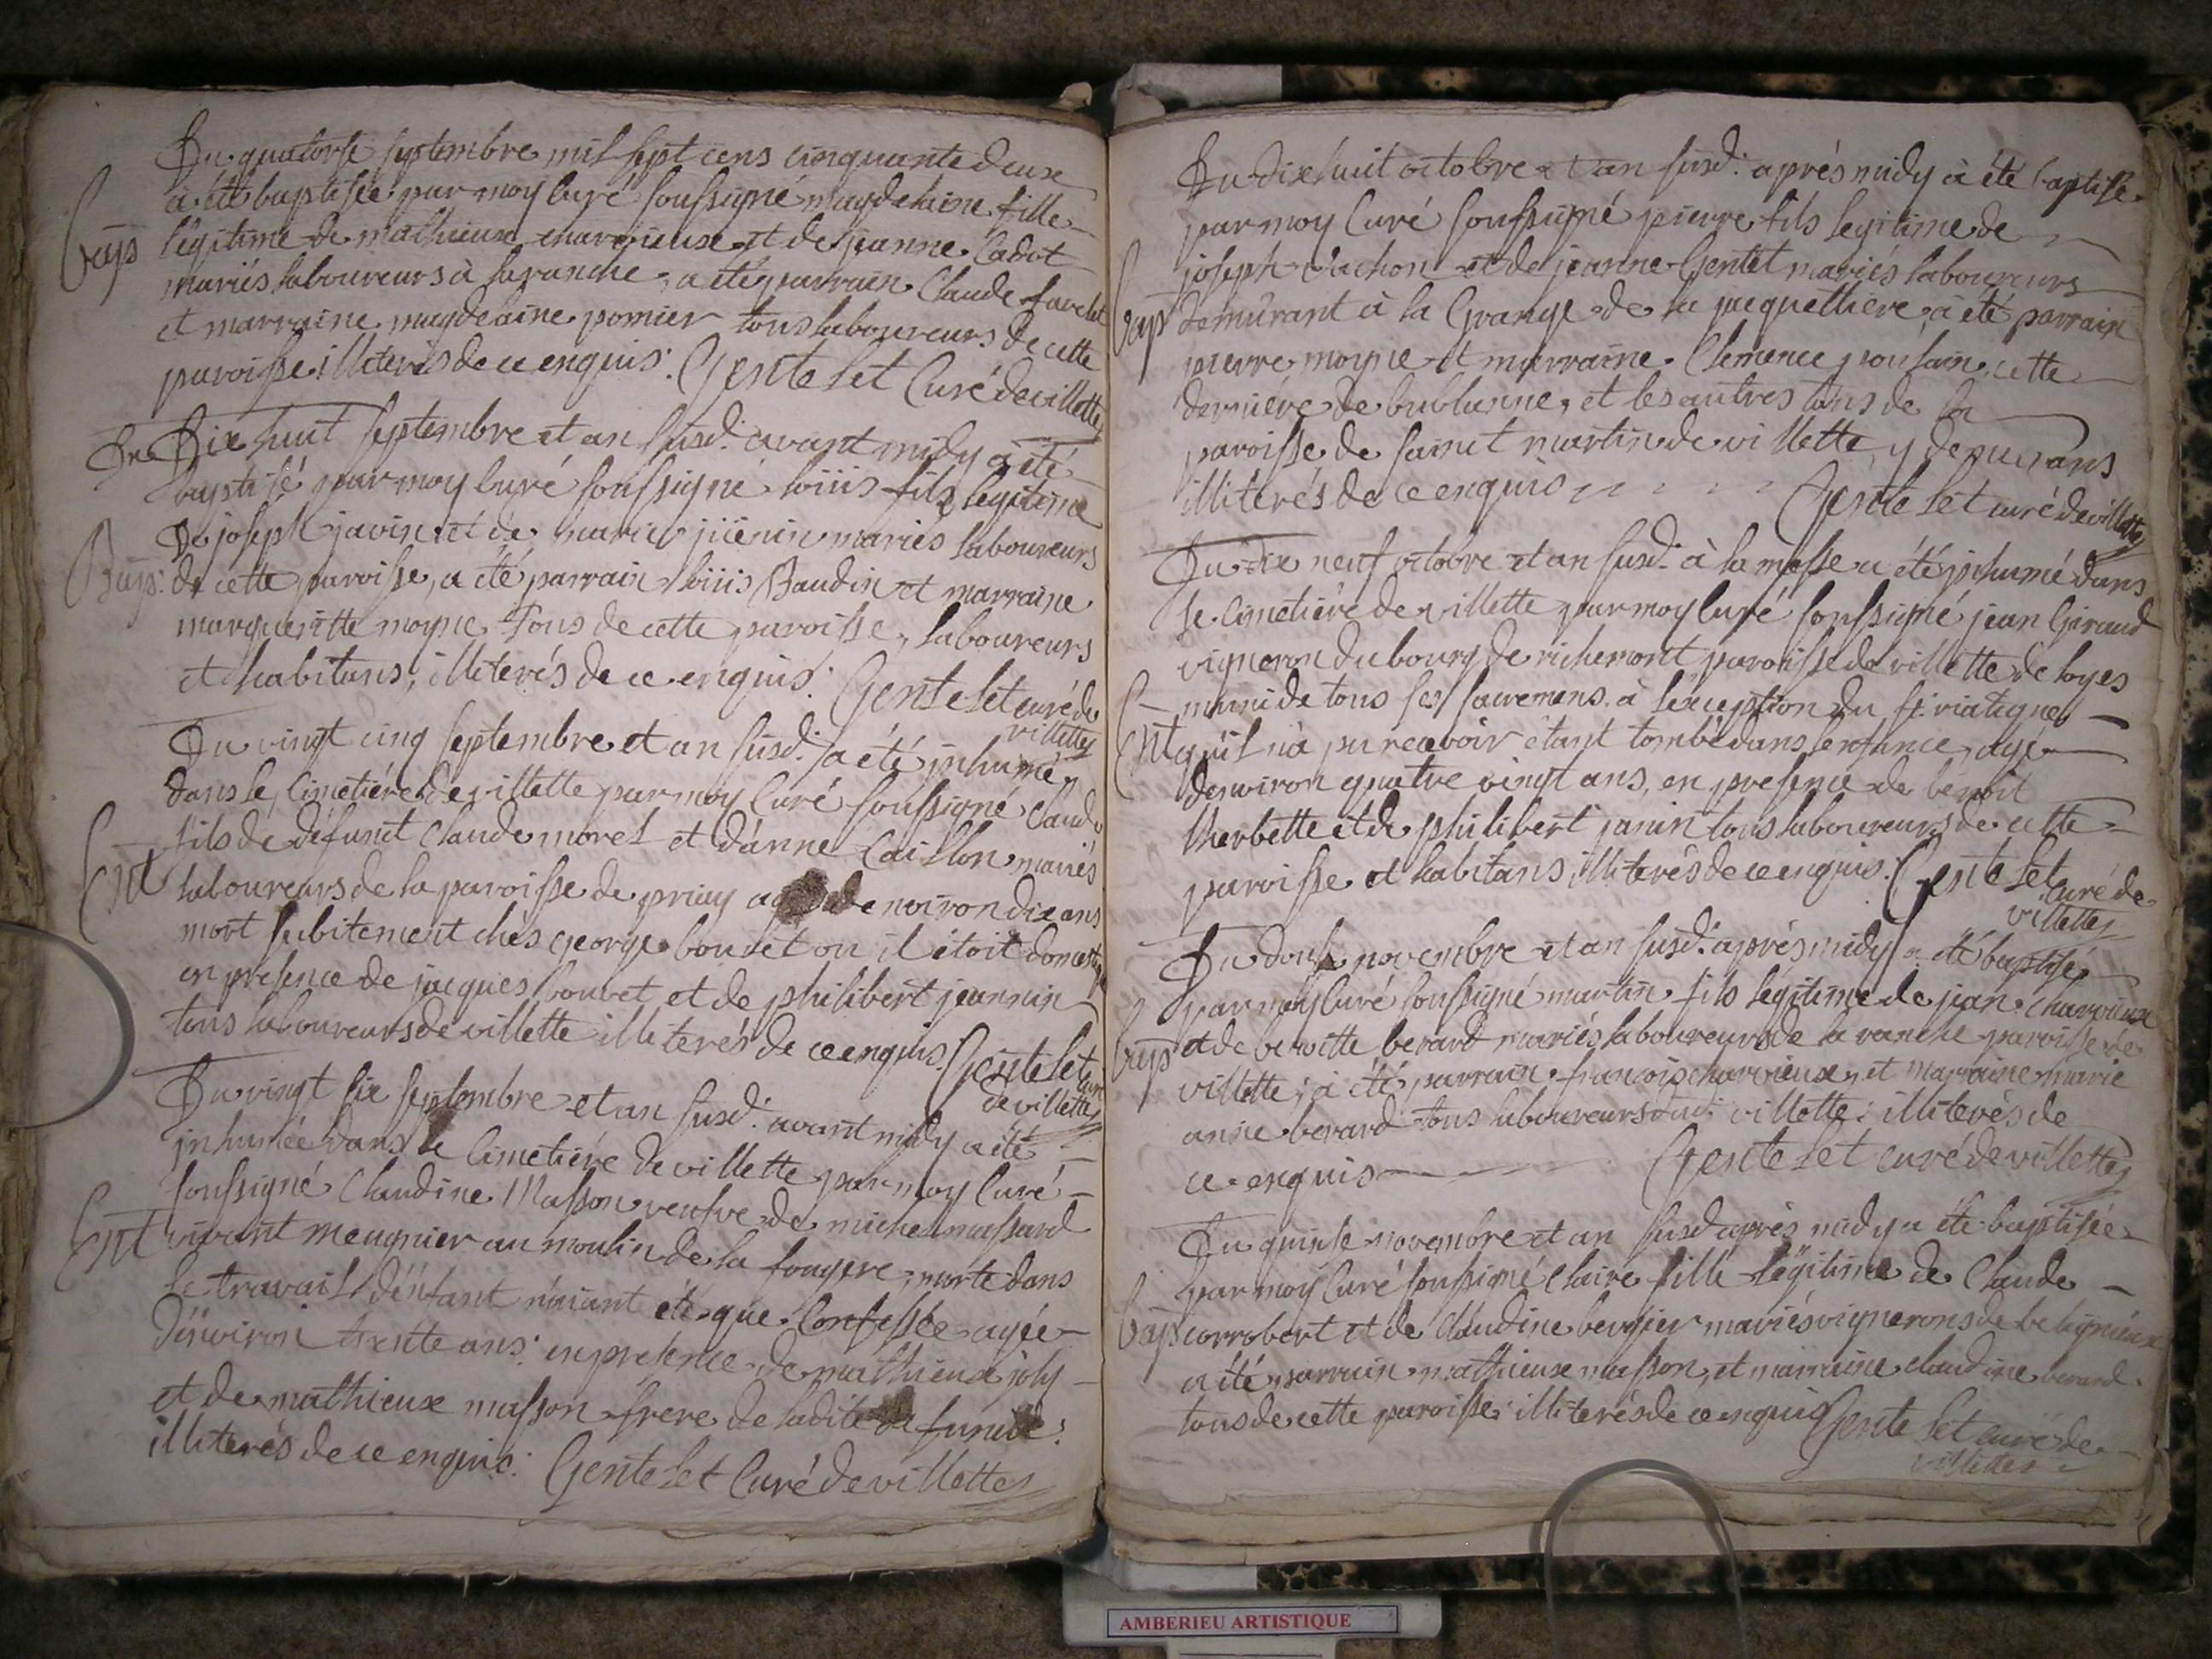 Du quatorse septembre mil sept cens cinquante deux
a été baptisée par moy curé soussigné magdelaine fille
Bap légitime de mathieux charvieux et de jeanne Cadot
mariés laboureurs à laranche, a été parrain Claude favelet
et marraine magdelaine pomier tous laboureurs de cette
paroisse illiterés de ce enquis. Gentelet Curé de villette
Du Dix huit septembre et an susd. avant midy a été
baptisé par moy curé soussigné loüis fils legitime
De joseph javin et de marie mariés laboureurs
Bap: de cette paroisse, a été parrain loüis Baudin et marraine
margueritte moyne Tous de cette paroisse, laboureurs
et habitans, illiterés de ce enquis. Gentelet curé de
villette
Du vingt cinq septembre et an susd. a été inhumé
dans le Cimetiére de villette par moy Curé soussigné Claude
fils de défunct Claude morel et d'anne Caillon mariés
Ent laboureurs de la paroisse de priay agé denviron dix ans
mort subitement chés george boulet ou il étoit domestique
en presence de jacques bouvet et de philibert jeannin
tous laboureurs de villette illiterés de ce enquis. Gentelet curé
de villette
Du vingt six septembre et an susd. avant midy a été
inhumée dans le Cimetiére de villette par moy Curé
soussigné Claudine Masson veufve de michel massard
Ent vivant meugnier au moulin de la fougere, morte dans
le travail d'enfant n'aiant été que Confessée agée
d'environ trente ans. en presence de mathieux joly
et de mathieux masson frere de ladite defuncte.
illiterés de ce enquis. Gentelet Curé de villette
Du dix huit octobre et an susd. aprés midy à été baptisé
par moy Curé soussigné pierre fils legitime de
joseph et de jeanne Gentet mariés laboureurs
Bap demeurant à la Grange de la jacquettiere, a été parrain
pierre moyne et marraine Clemence poulain, cette
derniére de bublanne, et les autres tous de la
paroisse de sainct martin de villette, y demeurans
illiterés de ce enquis Gentelet curé de villette
Du dix neuf octobre et an susd. à la messe a été inhumé dans
le Cimetiére de villette par moy Curé soussigné jean Giraud
vigneron du bourg de richemont paroisse de villette de loyes
muni de tous ses sacremens à l'exception du st. viatique
Ent qu'il n'a pu recevoir étant tombé dans l'enfance, agé
denviron quatre vingt ans, en presence de benoit
lherbette et de philibert janin tous laboureurs de cette
paroisse et habitans illiterés de ce enquis. Gentelet curé de
villette
Du douse novembre et an susd. aprés midy a été baptisé
par moy Curé soussigné martin fils légitime de jean charvieux
Bap et de benoitte berard mariés laboureurs de la ranche paroisse de
villette; a été parrain françois charvieux, et marraine marie
anne berard tous laboureurs dud. villette: illiterés de
ce enquis Gentelet curé de villette
Du quinse novembre et an susd aprés midy a été baptisée
par moy Curé soussigné claire fille légitime de Claude
Bap corrobert et de Claudine bergier mariés vignerons de beligneux
a été parrain mathieux masson, et marraine claudine berard.
tous de cette paroisse; illiterés de ce enquis Gentelet curé de
villette
AMBERIEU ARTISTIQUE